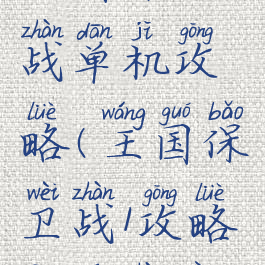 zhàn dān jī gōng
战单机攻
lüè wáng guó bǎo
略(王国保
wèi zhàn gōng lüè
卫战/攻略